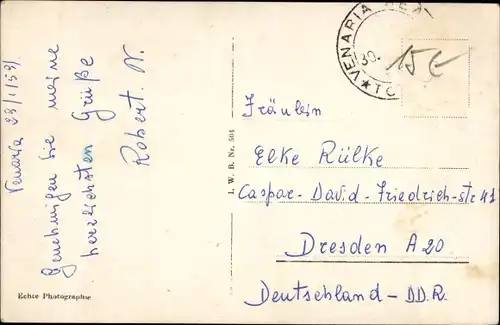 Venaria 29/1/59.
Genehmigen Sie meine
herzlichsten Grüße
Robert. N.
Echte Photographie
I. W. B. Nr. 504
VENARIA REA
30.
★ TO
15 €
Fräulein
Elke Rülke
Caspar-David-Friedrich-str 41
Dresden A 20
Deutschland-DDR.